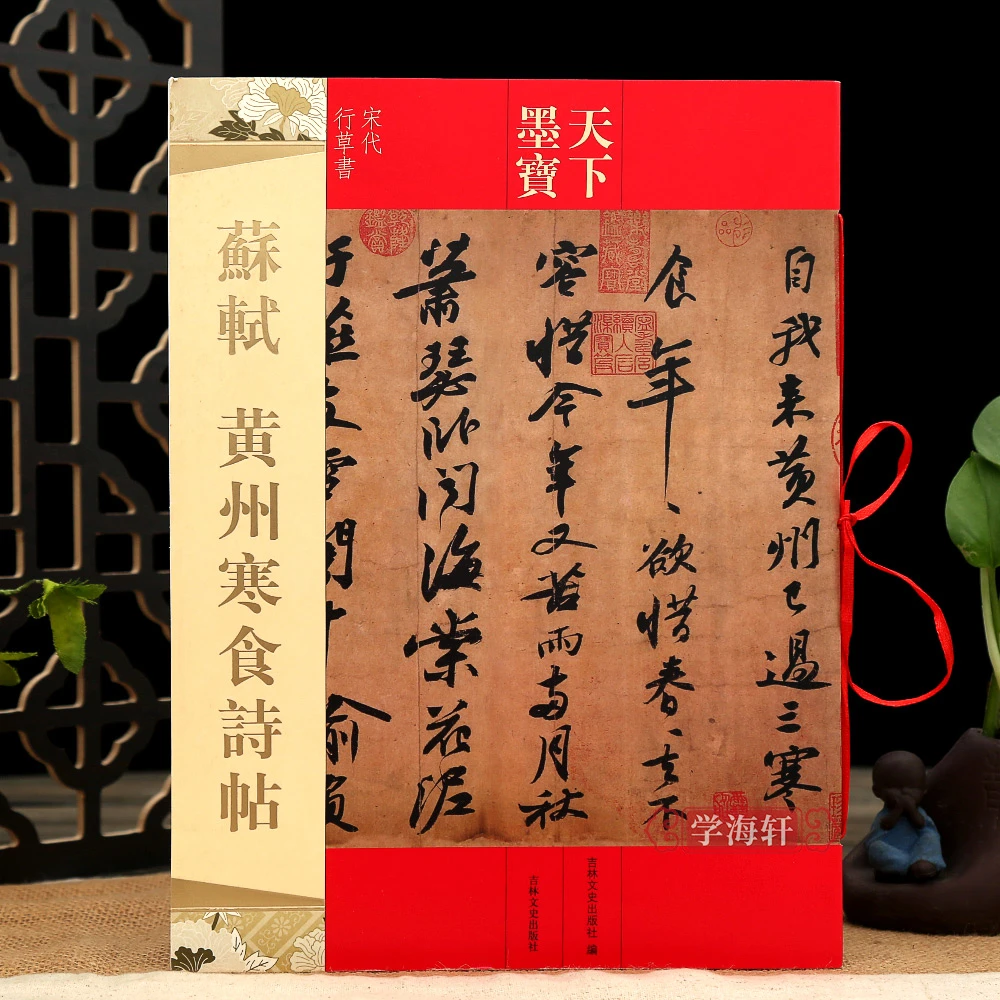 天下
墨寶
宋代
行草書
蘇軾 黄州寒食詩帖
自我来黄州已過三寒
食年〻欲惜春〻去不
容惜今年又苦雨两月秋
蕭瑟卧闻海棠花泥
燕支雪闇中偷負
学海轩
吉林文史出版社 編
吉林文史出版社